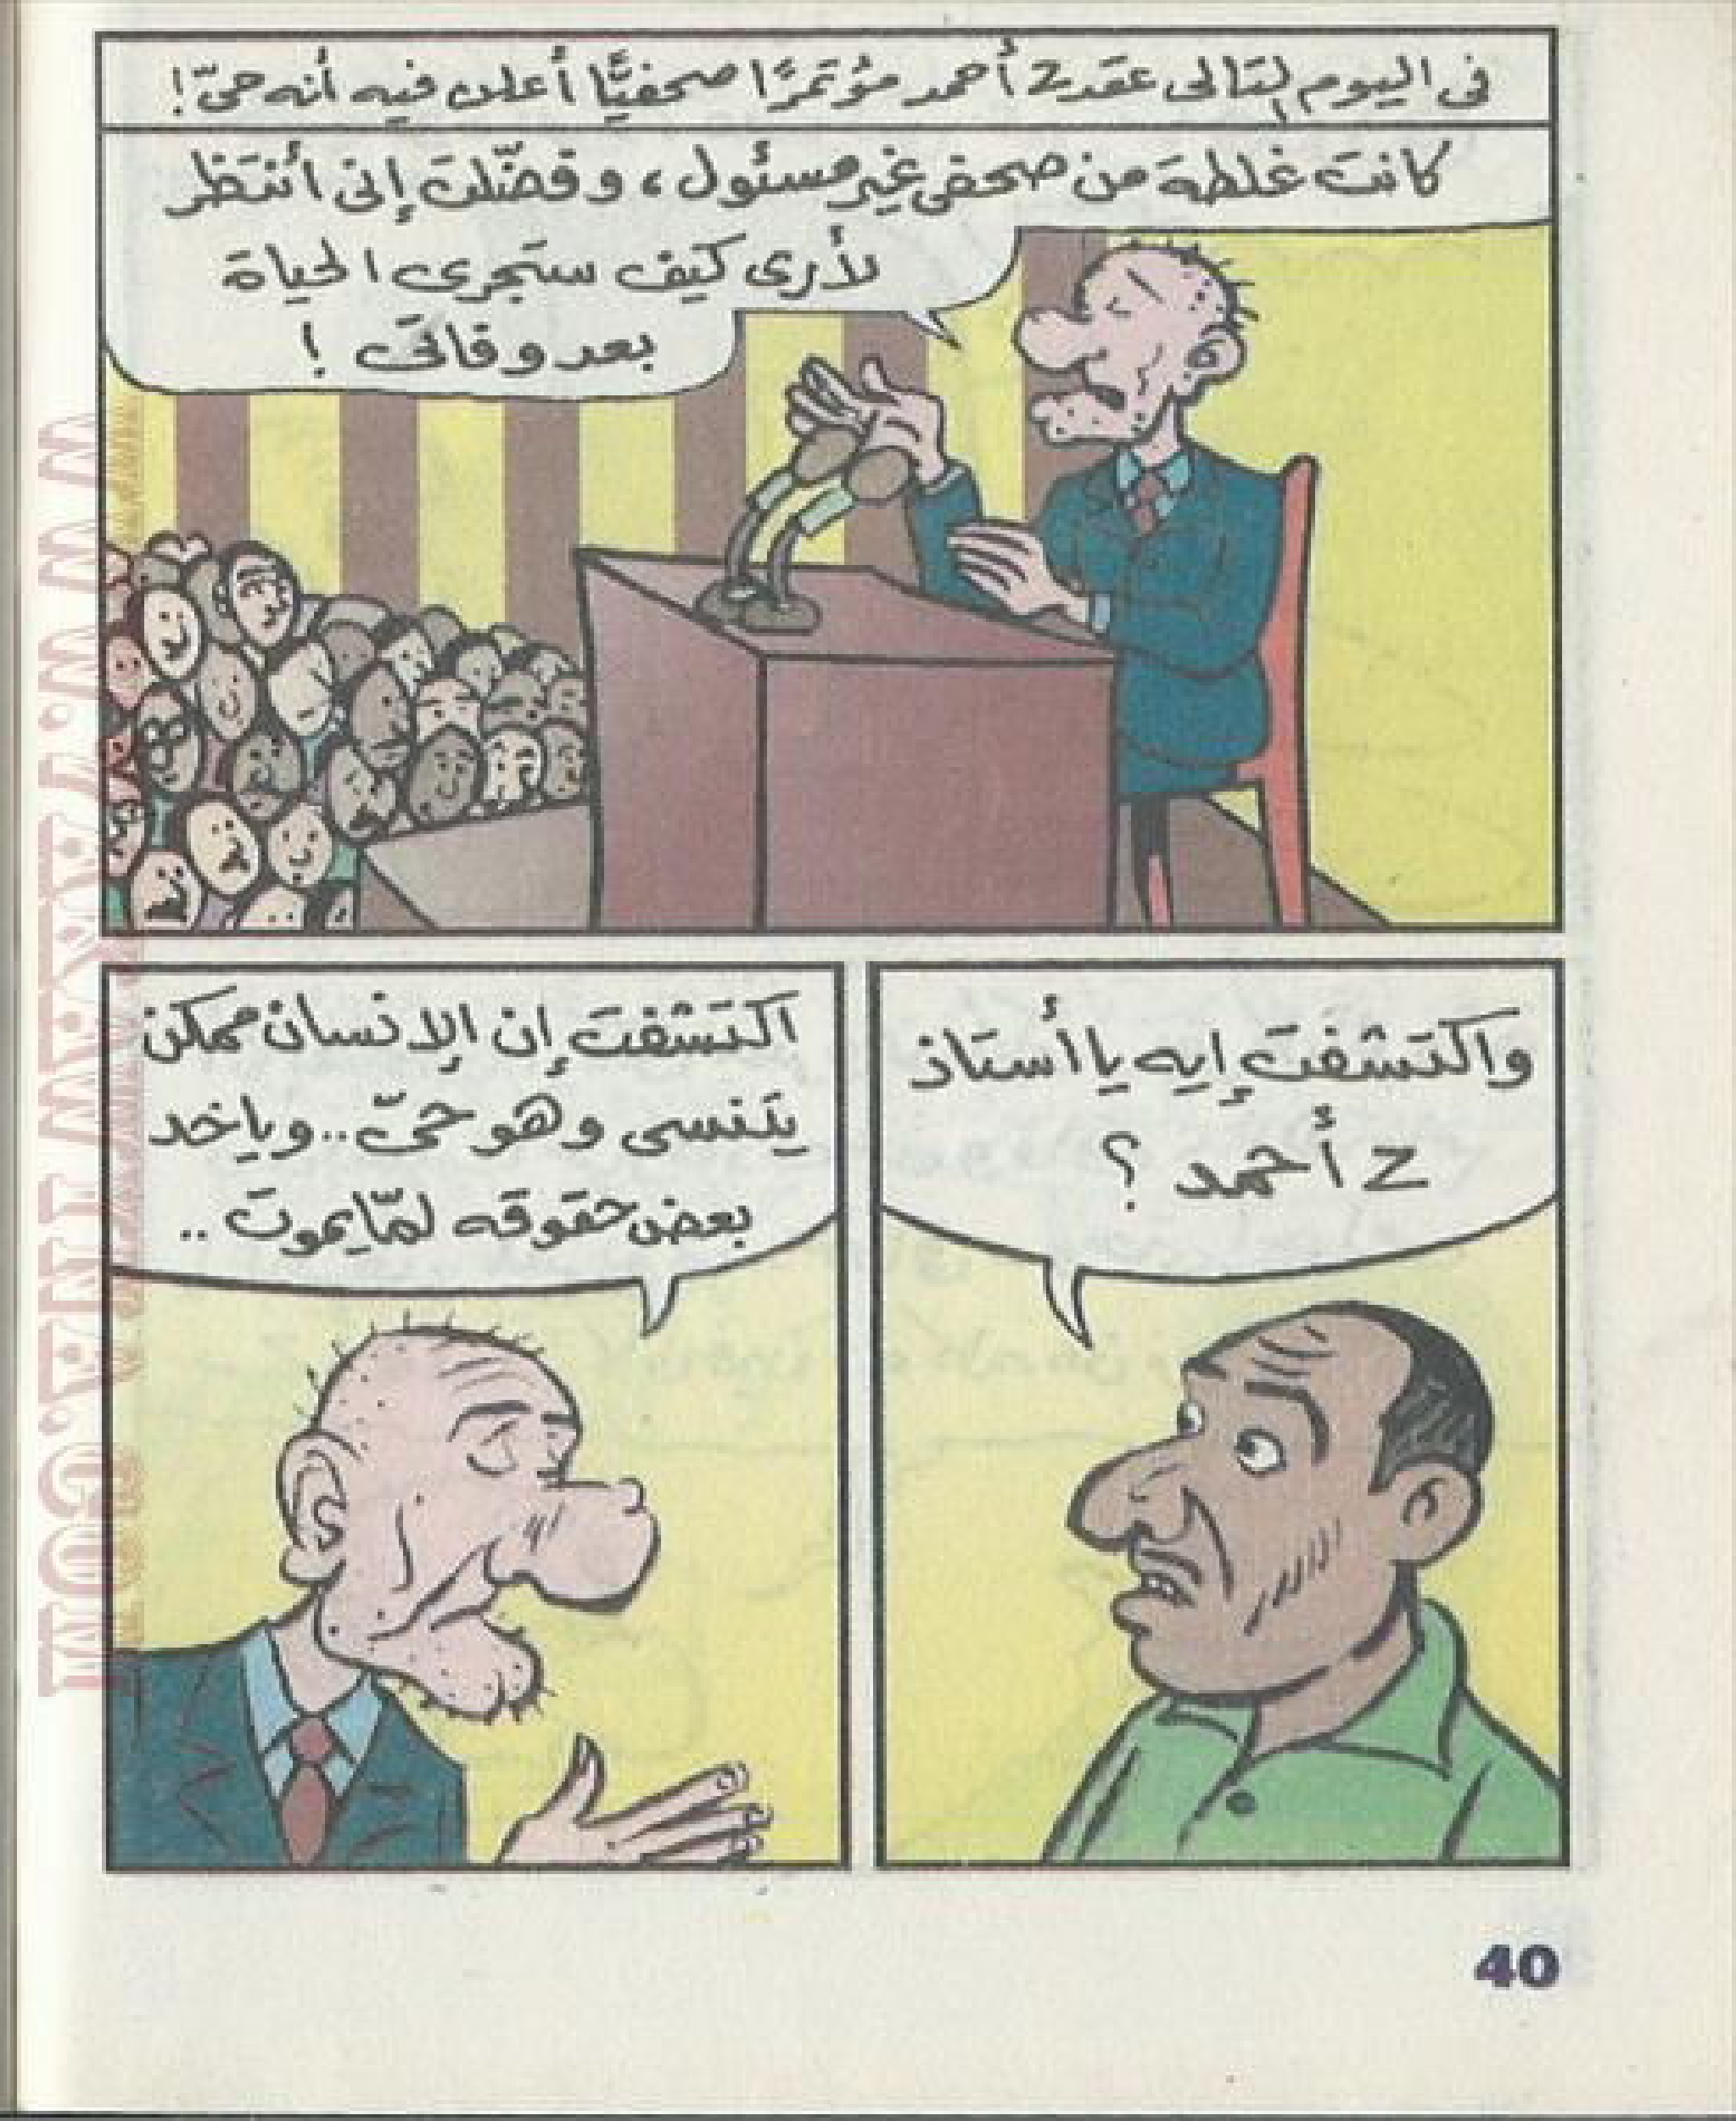 فى اليوم التالى عقد Z أحمد مؤتمرًا صحفيًّا أعلن فيه أنه حىّ!
كانت غلطة من صحفى غير مسئول، وفضّلت إنى أنتظر
لأرى كيف ستجرى الحياة
بعد وفاتى !
واكتشفت إيه يا أستاذ
Z أحمد ؟
اكتشفت إن الإنسان ممكن
يتنسى وهو حىّ.. وياخد
بعض حقوقه لمّا يموت ..
40